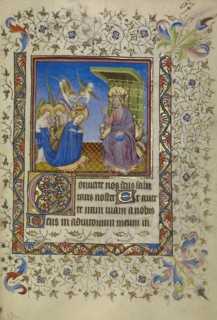 Conuerte nos deus salu
taris noster Et auer
te iram tuam a nobis
Deus in adiutorium meum in